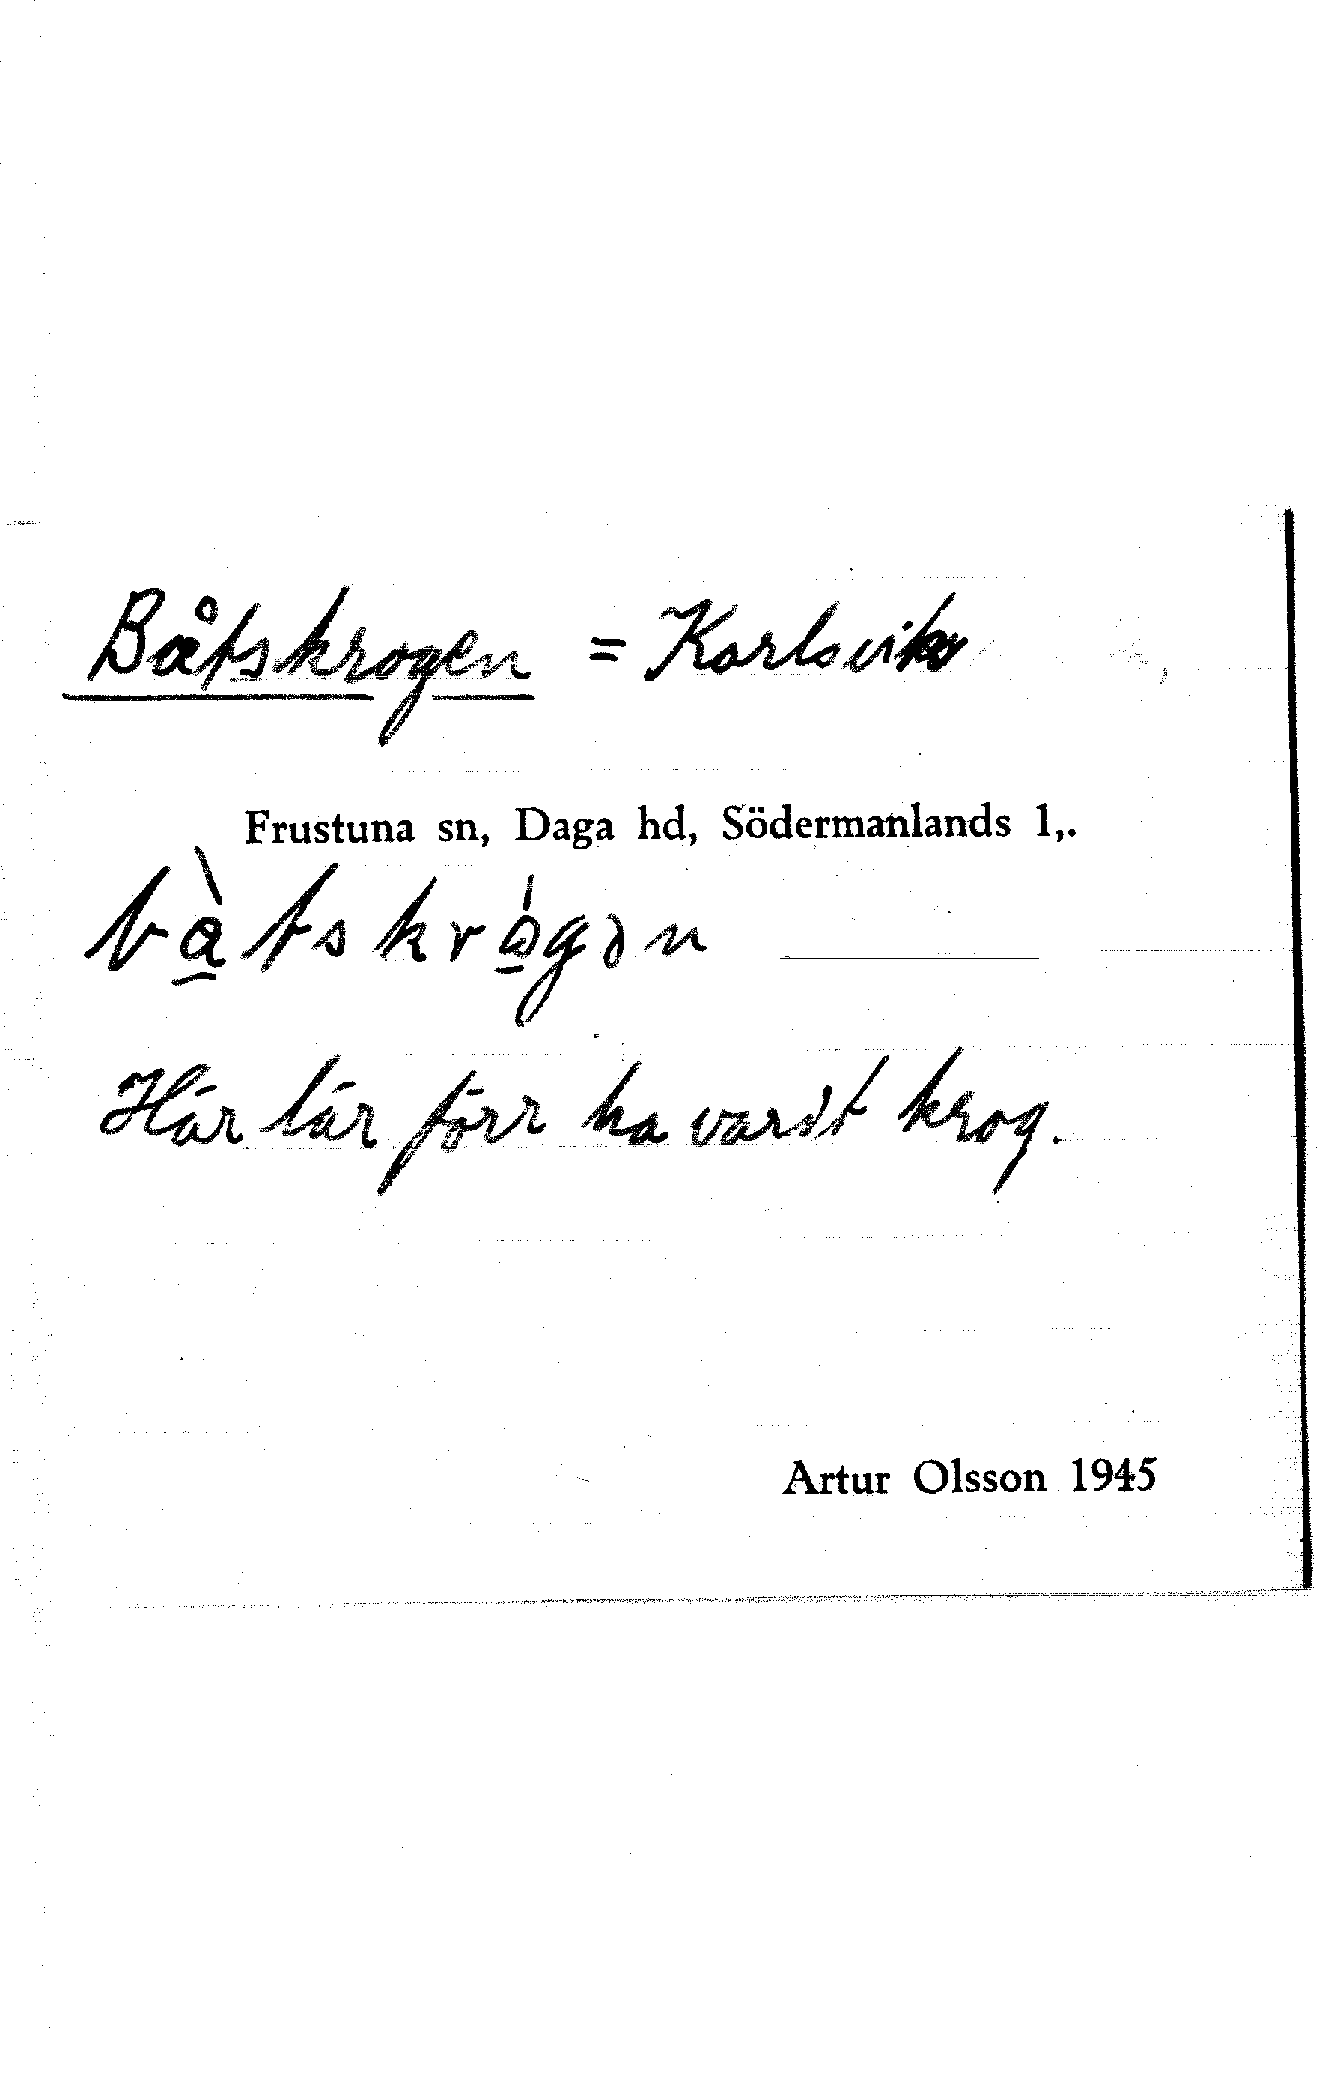 Båtskrogen = Karlsvik
Frustuna sn, Daga hd, Södermanlands l,.
bå̀tskrógən
Här lär förr ha varit krog.
Artur Olsson 1945